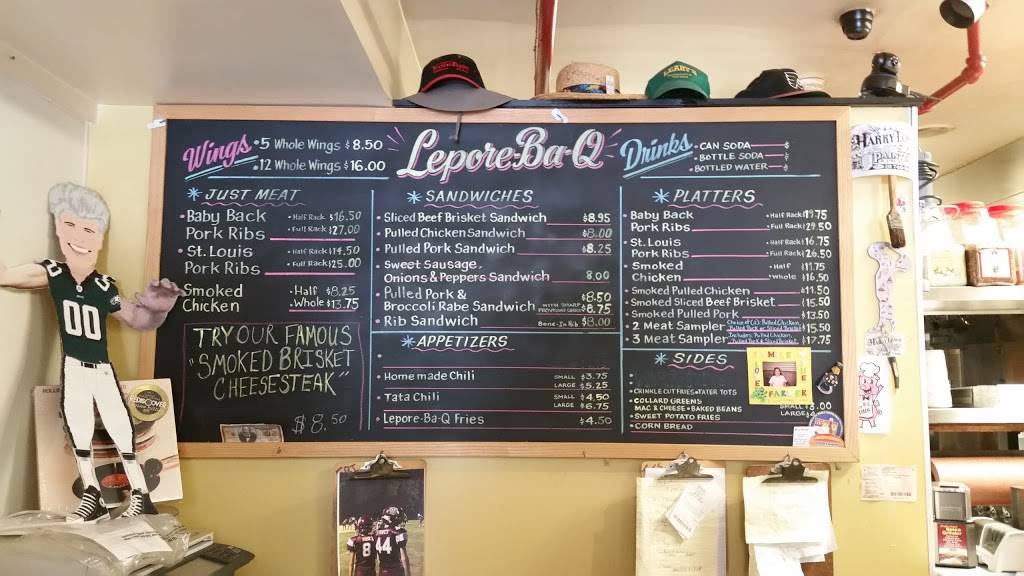 Wings
• 5 Whole Wings $8.50
• 12 Whole Wings $16.00
Lepore-Ba-Q
Drinks
• CAN SODA $
• BOTTLE SODA $
• BOTTLED WATER $
* JUST MEAT
• Baby Back
Pork Ribs
• Half Rack $16.50
• Full Rack $27.00
• St. Louis
Pork Ribs
• Half Rack $14.50
• Full Rack $25.00
• Smoked
Chicken
• Half $8.25
• Whole $13.75
TRY OUR FAMOUS
"SMOKED BRISKET
CHEESESTEAK"
$8.50
* SANDWICHES
• Sliced Beef Brisket Sandwich $8.95
• Pulled Chicken Sandwich $8.00
• Pulled Pork Sandwich $8.25
• Sweet Sausage
Onions & Peppers Sandwich 8.00
• Pulled Pork & $8.50
Broccoli Rabe Sandwich WITH SHARP PROVOLONE $8.75
• Rib Sandwich Bone-In Rib $8.00
* APPETIZERS
• Homemade Chili SMALL $3.75
LARGE $5.25
• Tata Chili SMALL $4.50
LARGE $6.75
• Lepore-Ba-Q Fries $4.50
* PLATTERS
• Baby Back
Pork Ribs
• Half Rack $19.75
• Full Rack $29.50
• St. Louis
Pork Ribs
• Half Rack $16.75
• Full Rack $26.50
• Smoked
Chicken
• Half $11.75
• Whole $16.50
• Smoked Pulled Chicken $11.50
• Smoked Sliced Beef Brisket $15.50
• Smoked Pulled Pork $13.50
• 2 Meat Sampler Choice of (2): Pulled Chicken, Pulled Pork or Sliced Brisket $15.50
• 3 Meat Sampler Includes: Pulled Chicken, Pulled Pork & Sliced Brisket $17.75
* SIDES
• CRINKLE CUT FRIES • TATER TOTS
• COLLARD GREENS
MAC & CHEESE • BAKED BEANS
• SWEET POTATO FRIES
• CORN BREAD
SMALL $3.00
LARGE
00
8 44
HARRY